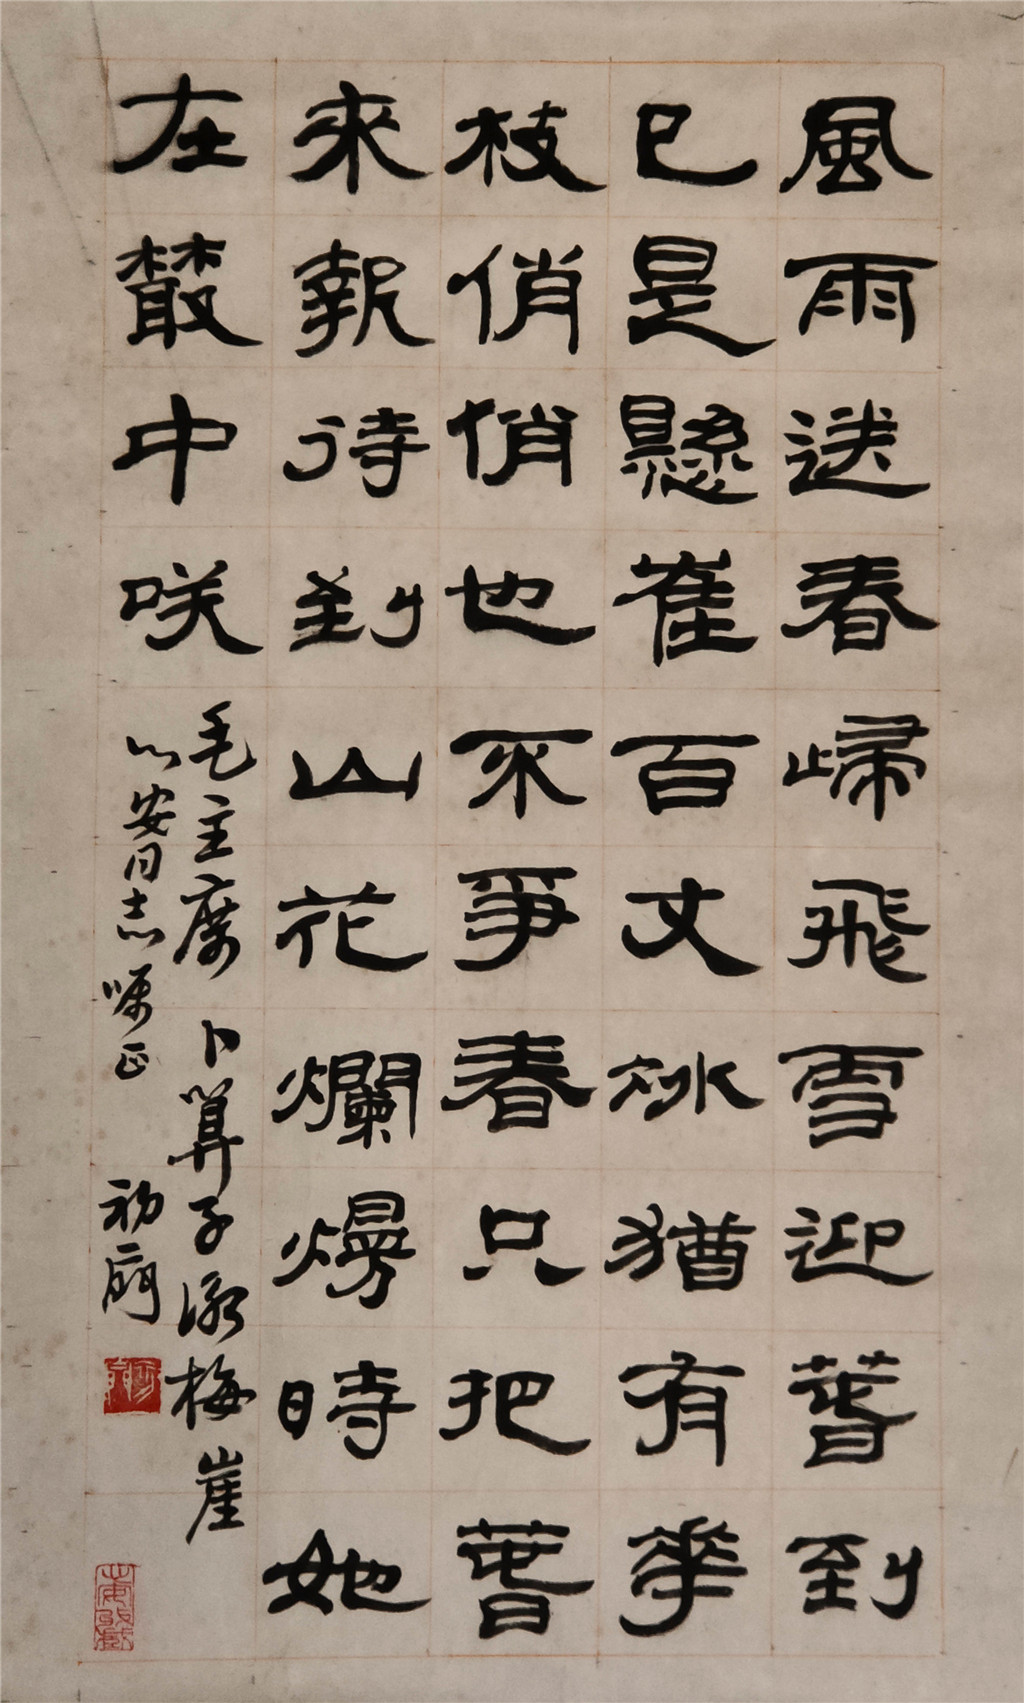 風雨送春歸飛雪迎萅到
已是懸崔百丈冰猶有華
枝俏俏也不爭春只把萅
來報待到山花爛熳時她
在叢中咲
毛主席 卜算子咏梅 崖
以安同志嘱正